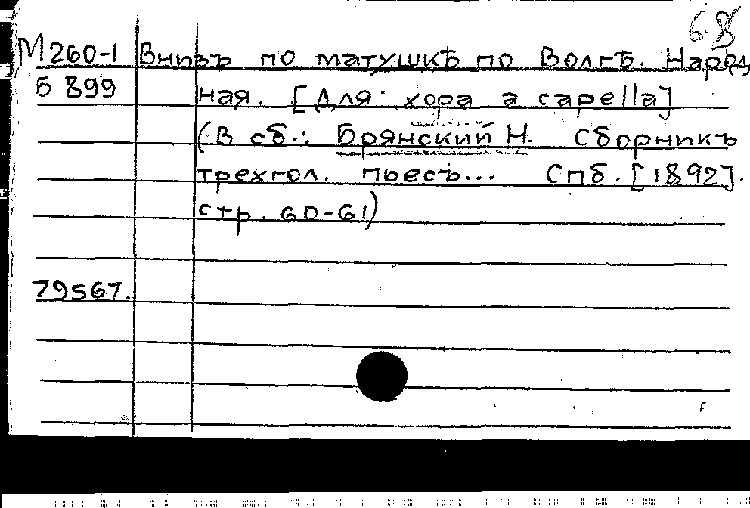 68
М260-1 Внизъ по матушкѣ по Волгѣ. Народ
Б 899 ная. [Для: хора a capella]
(В сб.: Брянский Н. Сборникъ
трехгол. пьесъ... Спб. [1892].
стр. 60-61)
79567.